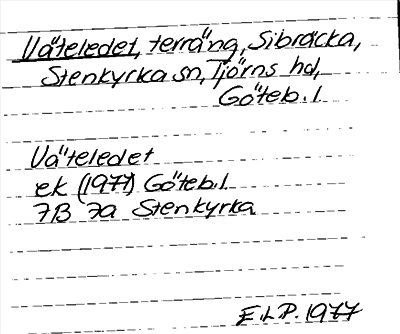 Väteledet, terräng, Sibräcka,
Stenkyrka sn, Tjörns hd,
Göteb. l
Väteledet
ek (1977) Göteb.l.
7B 7a Stenkyrka
E.L.P. 1977